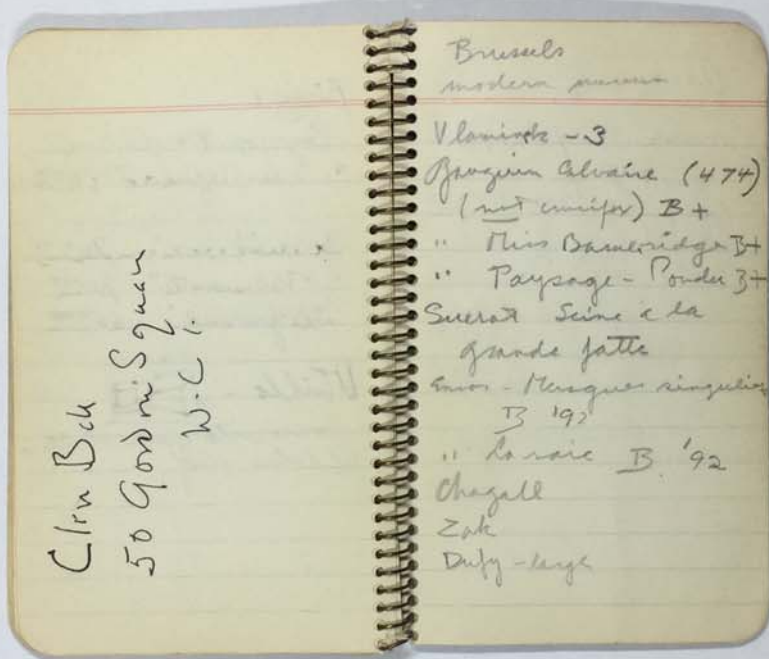 Clive Bell
50 Gordon Square
W.C.1.
Brussels
modern museum
Vlaminck - 3
Gauguin Calvaire (474)
(not crucifix) B+
" Miss Bambridge B+
" Paysage - Pouldu B+
Suerat Seine à la
grande jatte
Ensor - Masques singuliers
B '92
" La raie B '92
Chagall
Zak
Dufy - large